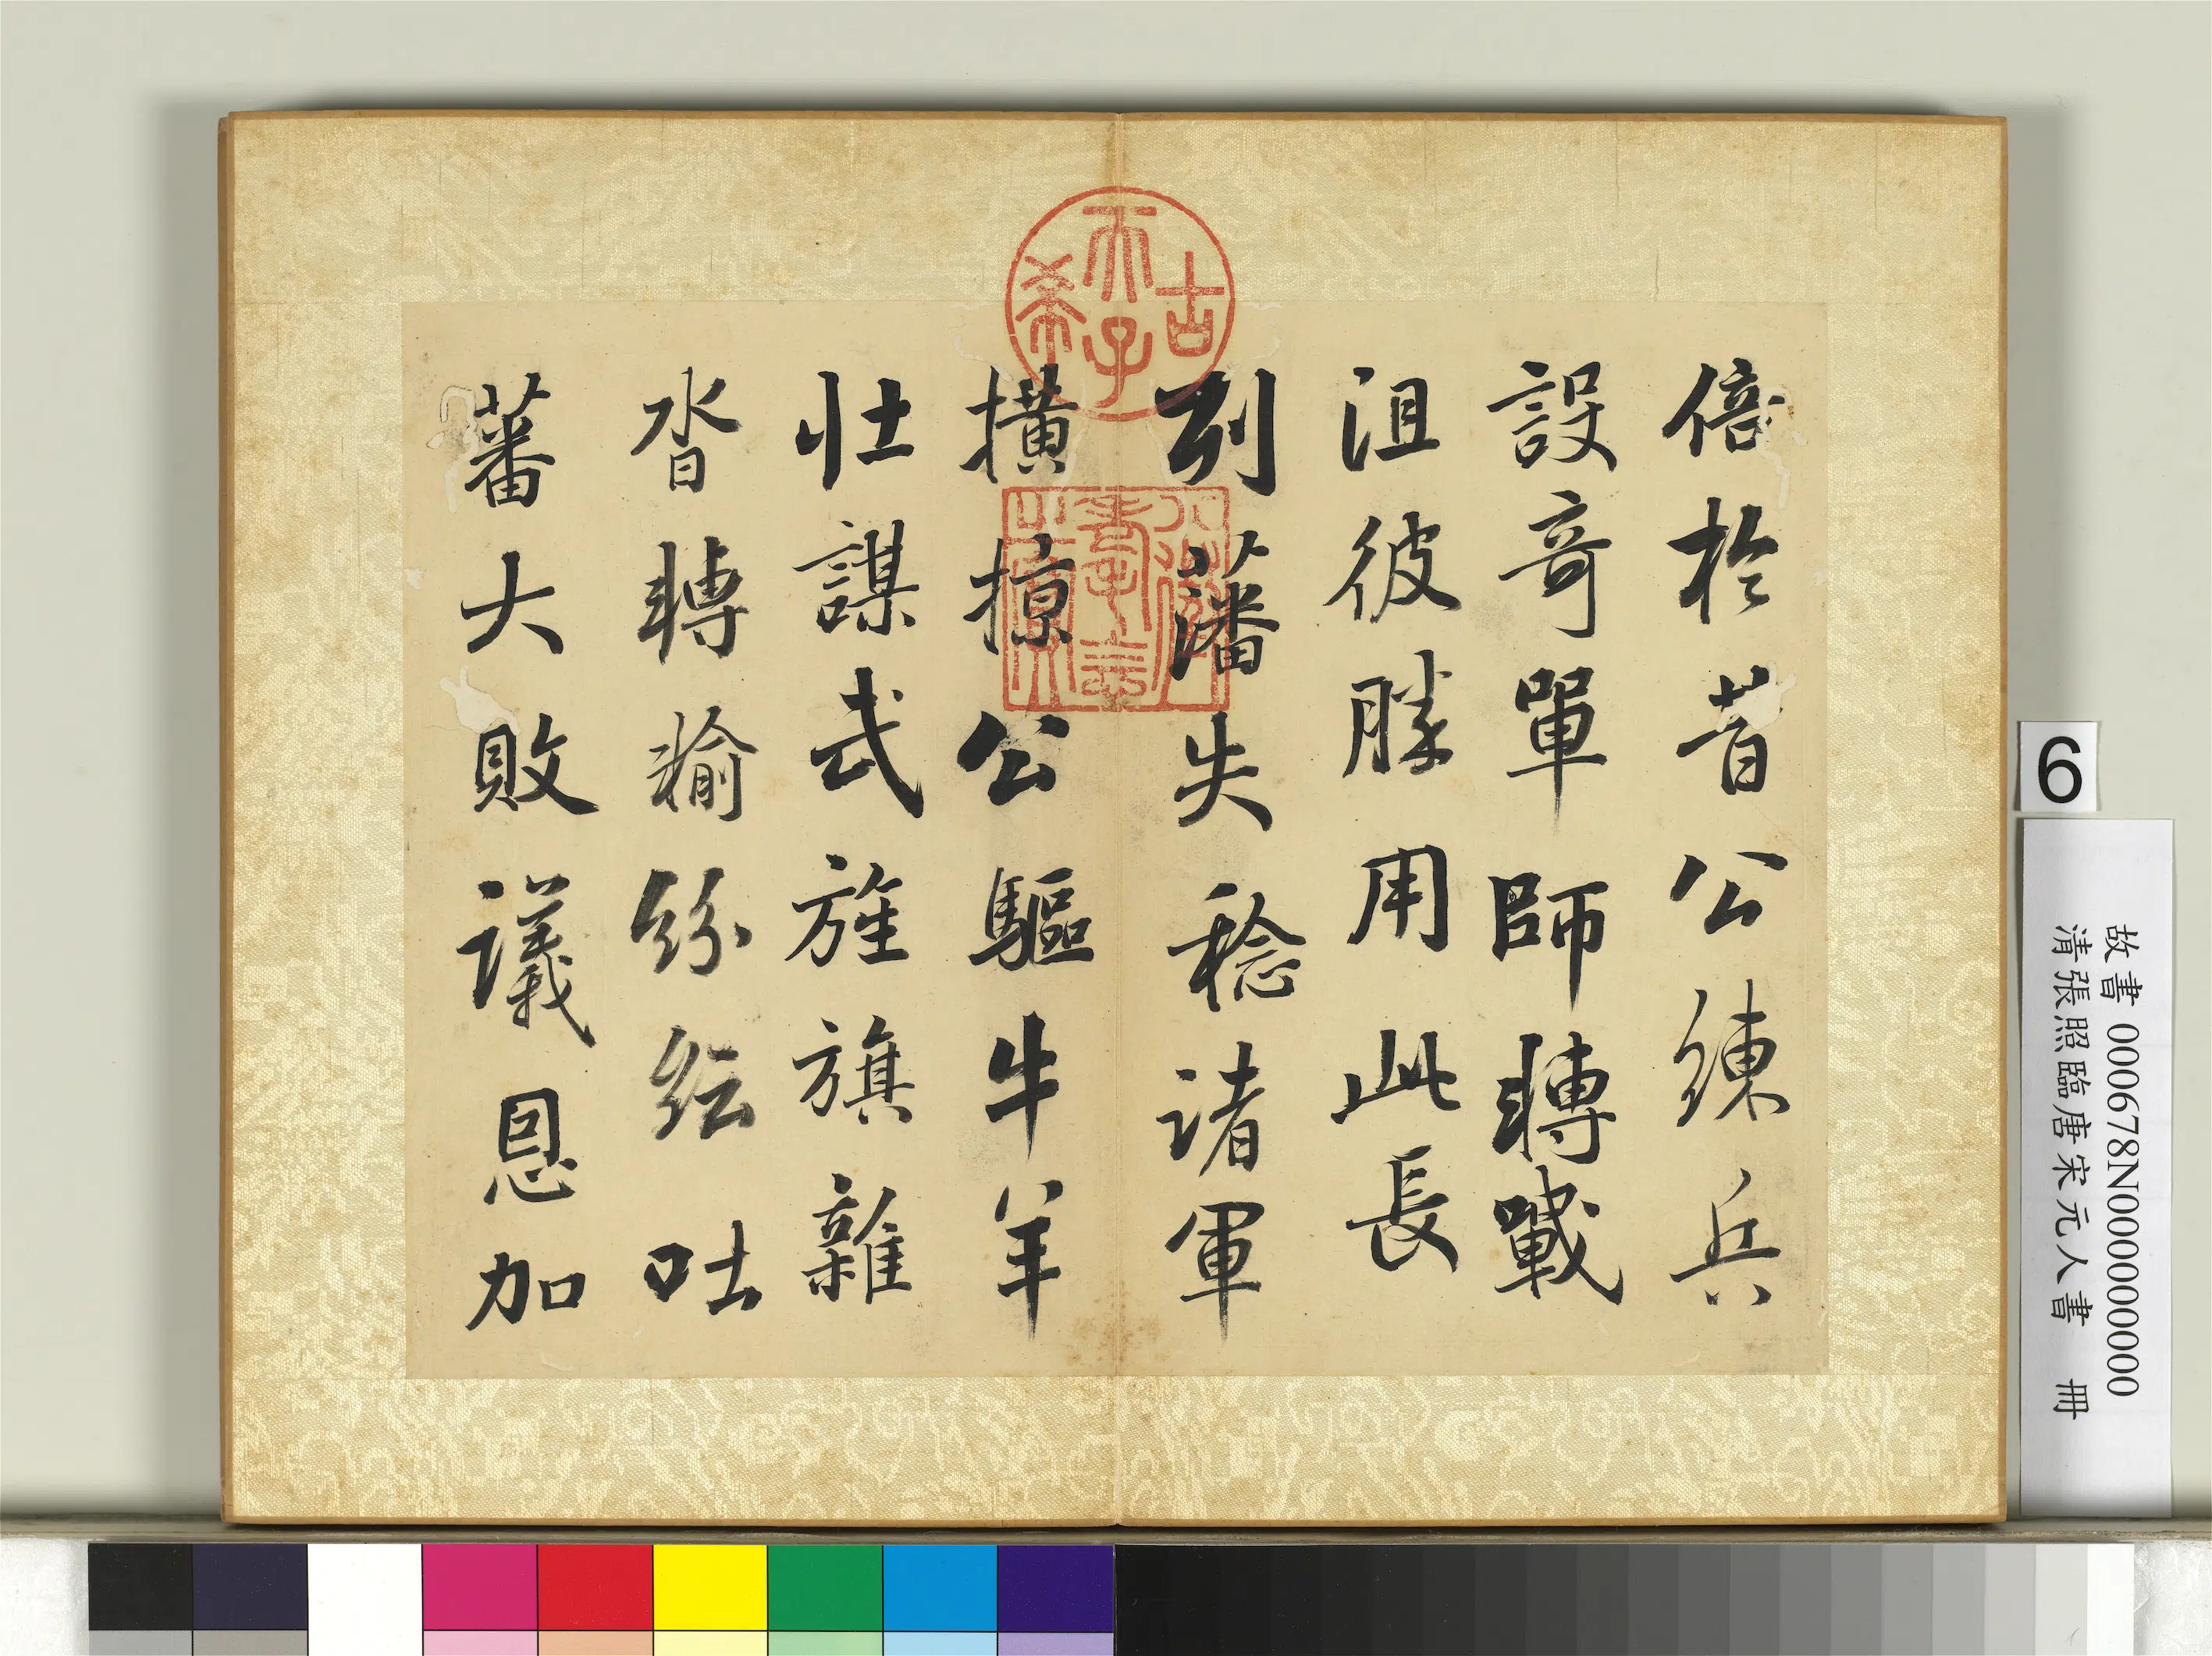 倍於昔公練兵
設奇單師轉戰
沮彼勝用此長
列藩失稔諸軍
橫掠公驅牛羊
壯謀武旌旗雜
沓轉輸紛紜吐
蕃大敗議恩加
古
天子
希
6
故書 000678N000000000
清張照臨唐宋元人書 冊